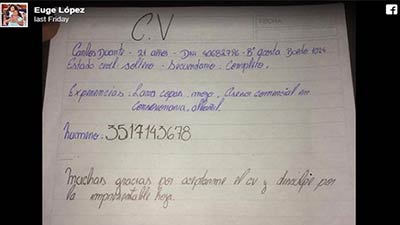 Euge López
last Friday
C.V
FECHA
Carlos Duarte - 21 años - DNI 40682796 - B° acosta
Estado civil soltero - Secundario: Completo.
Experiencias: Lava copas, mozo, Cursor comercial en
Conservadoria, albañil.
Numero: 3517143678
Muchas gracias por aceptarme el cv y disculpe por
la impresentable hoja.